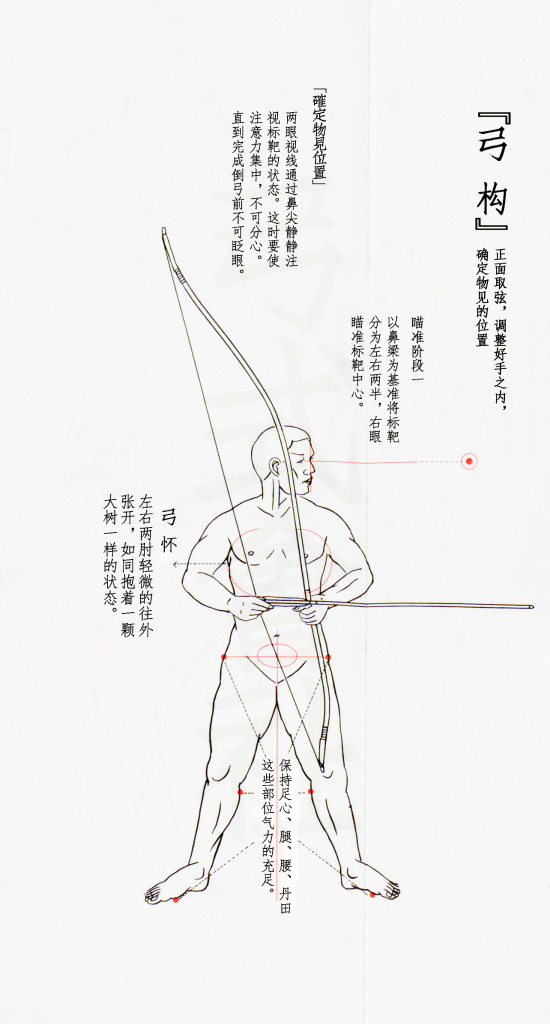 『弓 构』
正面取弦，调整好手之内，
确定物见的位置
瞄准阶段一
以鼻梁为基准将标靶
分为左右两半，右眼
瞄准标靶中心。
「確定物見位置」
两眼视线通过鼻尖静静注
视标靶的状态。这时要使
注意力集中，不可分心。
直到完成倒弓前不可眨眼。
弓 怀
左右两肘轻微的往外
张开，如同抱着一颗
大树一样的状态。
保持足心、腿、腰、丹田
这些部位气力的充足。